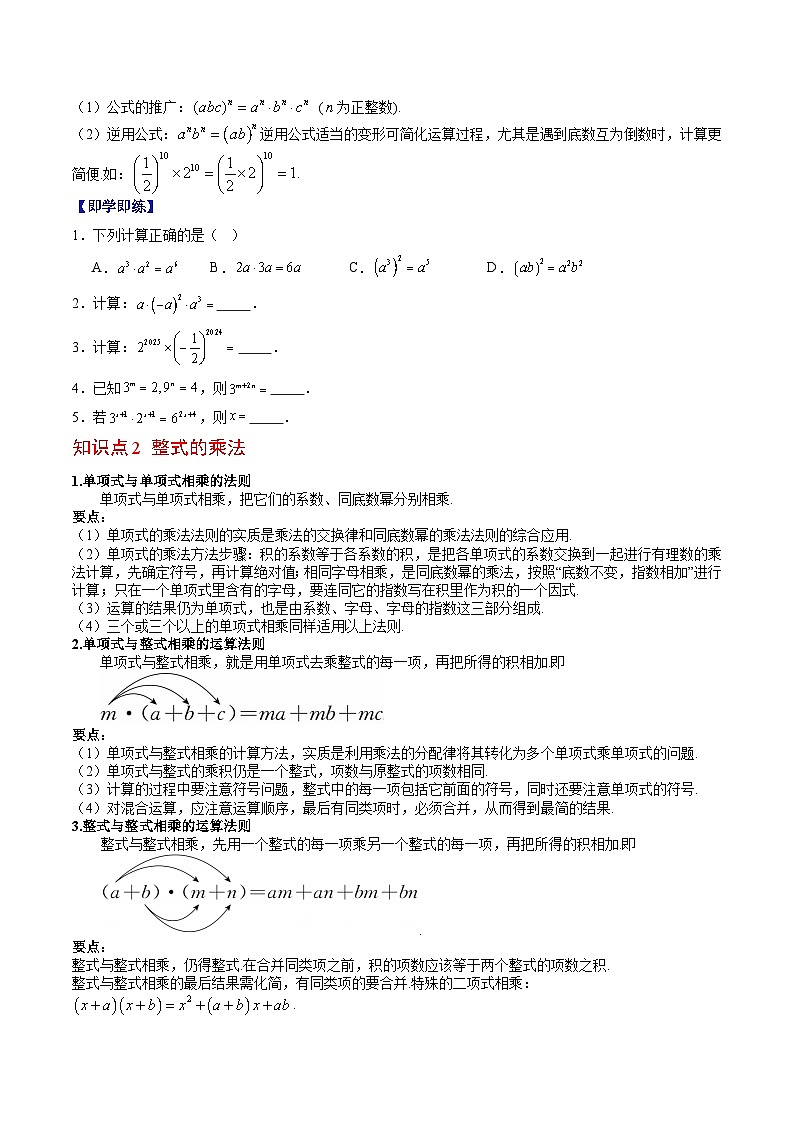 （1）公式的推广：(abc)ⁿ = aⁿ·bⁿ·cⁿ （n为正整数).
（2）逆用公式：aⁿbⁿ = (ab)ⁿ逆用公式适当的变形可简化运算过程，尤其是遇到底数互为倒数时，计算更
简便.如：(1/2)¹⁰ × 2¹⁰ = (1/2 × 2)¹⁰ = 1.
【即学即练】
1．下列计算正确的是（ ）
A．a³·a² = a⁶ B．2a·3a = 6a C．(a³)² = a⁵ D．(ab)² = a²b²
2．计算：a·(−a)²·a³ = _____．
3．计算：2²⁰²⁵ × (−1/2)²⁰²⁴ = _____．
4．已知3ᵐ = 2, 9ⁿ = 4，则3ᵐ⁺²ⁿ = _____．
5．若
，则x = _____．
知识点2 整式的乘法
1.单项式与单项式相乘的法则
单项式与单项式相乘，把它们的系数、同底数幂分别相乘.
要点：
（1）单项式的乘法法则的实质是乘法的交换律和同底数幂的乘法法则的综合应用.
（2）单项式的乘法方法步骤：积的系数等于各系数的积，是把各单项式的系数交换到一起进行有理数的乘
法计算，先确定符号，再计算绝对值；相同字母相乘，是同底数幂的乘法，按照“底数不变，指数相加”进行
计算；只在一个单项式里含有的字母，要连同它的指数写在积里作为积的一个因式.
（3）运算的结果仍为单项式，也是由系数、字母、字母的指数这三部分组成.
（4）三个或三个以上的单项式相乘同样适用以上法则.
2.单项式与整式相乘的运算法则
单项式与整式相乘，就是用单项式去乘整式的每一项，再把所得的积相加.即
m·(a+b+c)=ma+mb+mc
要点：
（1）单项式与整式相乘的计算方法，实质是利用乘法的分配律将其转化为多个单项式乘单项式的问题.
（2）单项式与整式的乘积仍是一个整式，项数与原整式的项数相同.
（3）计算的过程中要注意符号问题，整式中的每一项包括它前面的符号，同时还要注意单项式的符号.
（4）对混合运算，应注意运算顺序，最后有同类项时，必须合并，从而得到最简的结果.
3.整式与整式相乘的运算法则
整式与整式相乘，先用一个整式的每一项乘另一个整式的每一项，再把所得的积相加.即
(a+b)·(m+n)=am+an+bm+bn
.
要点：
整式与整式相乘，仍得整式.在合并同类项之前，积的项数应该等于两个整式的项数之积.
整式与整式相乘的最后结果需化简，有同类项的要合并.特殊的二项式相乘：
(x+a)(x+b) = x²+(a+b)x+ab.